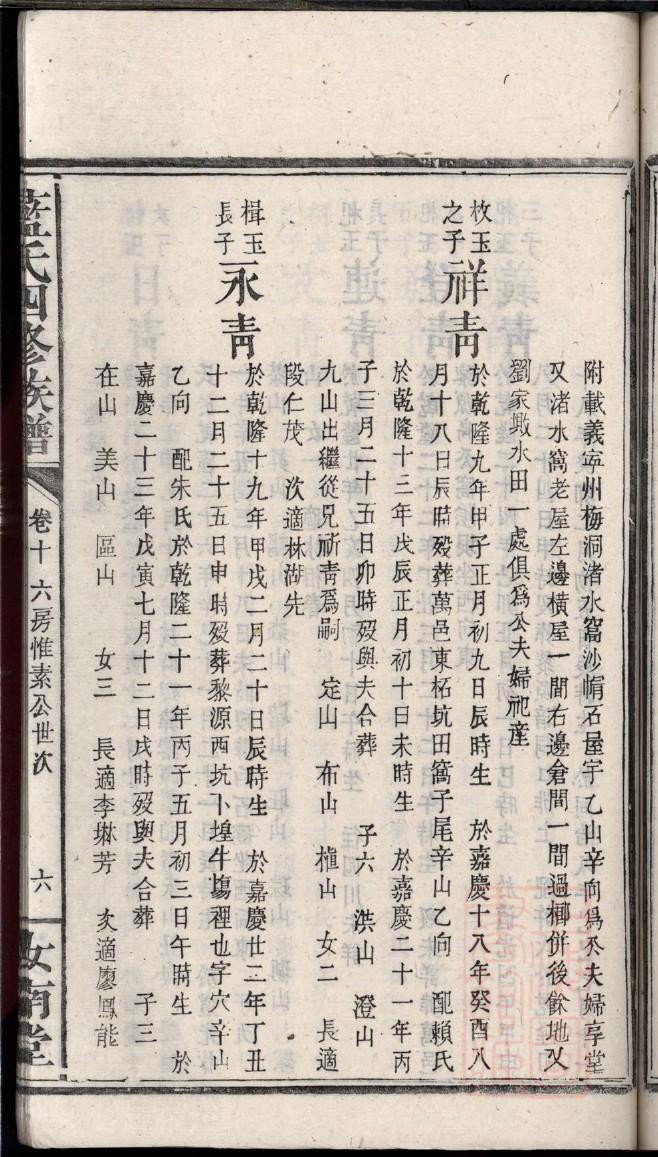 附載義寧州梅洞渚水窩沙帽石屋宇乙山辛向爲公夫婦享堂
又渚水窩老屋左邊橫屋一間右邊倉間一間過衕併後餘地又
劉家墩水田一處俱爲公夫婦祀產
枚玉之子祥靑
於乾隆九年甲子正月初九日辰時生 於嘉慶十八年癸酉八
月十八日辰時歿葬萬邑東柘坑田篙子尾辛山乙向 配賴氏
於乾隆十三年戊辰正月初十日未時生 於嘉慶二十一年丙
子三月二十五日卯時歿與夫合葬 子六 洪山 澄山
九山出繼從兄祈靑爲嗣 定山 布山 植山 女二 長適
段仁茂 次適林湖先
楫玉長子永靑
於乾隆十九年甲戌二月二十日辰時生 於嘉慶廿二年丁丑
十二月二十五日申時歿葬黎源西坑卜堭牛塲裡也字穴辛山
乙向 配朱氏於乾隆二十一年丙子五月初三日午時生 於
嘉慶二十三年戊寅七月十二日戌時歿與夫合葬 子三
在山 美山 區山 女三 長適李琳芳 次適廖鳳能
藍氏四修族譜
卷十 六房惟素公世次
六
汝南堂